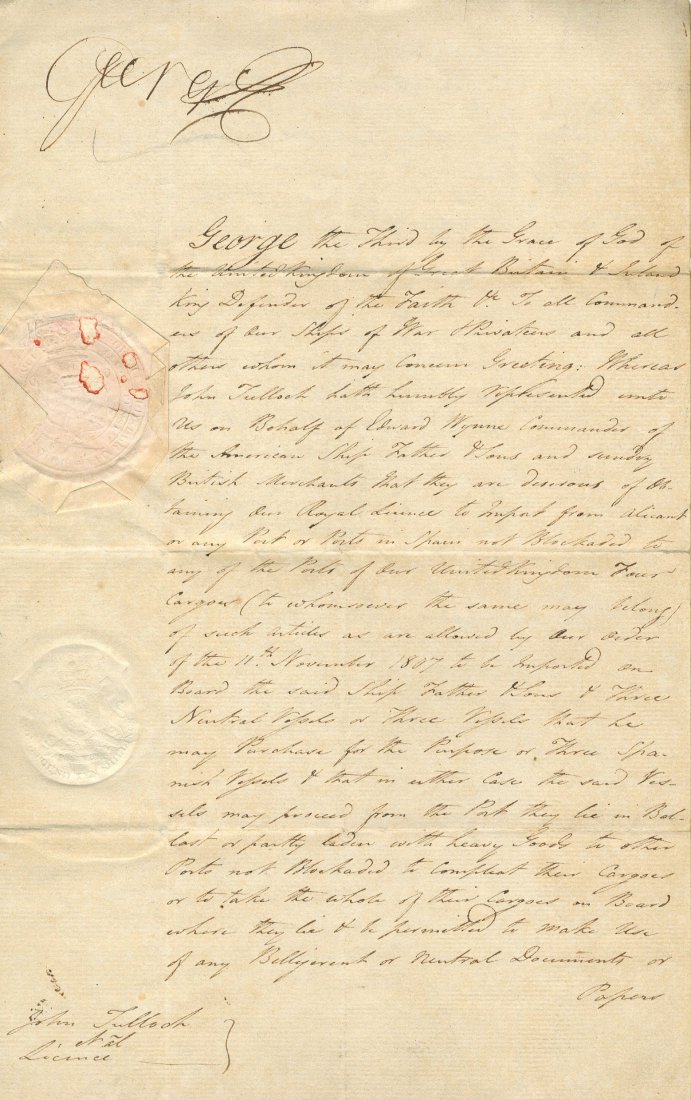 George R
George the Third by the Grace of God of
the United Kingdom of Great Britain & Ireland
King Defender of the Faith &c. To all Command-
ers of Our Ships of War & Privateers and all
others whom it may Concern Greeting: Whereas
John Tulloch hath humbly represented unto
Us on Behalf of Edward Wynne Commander of
the American Ship Father & Sons and sundry
British Merchants that they are desirous of Ob-
taining Our Royal Licence to Import from Alicant
or any Port or Ports in Spain not Blockaded to
any of the Ports of Our United Kingdom Four
Cargoes (to whomsoever the same may belong)
of such Articles as are allowed by Our Order
of the 11th. November 1807 to be Imported on
Board the said Ship Father & Sons & Three
Neutral Vessels or Three Vessels that he
may Purchase for the Purpose or Three Spa-
nish Vessels & that in either Case the said Ves-
sels may proceed from the Port they lie in Bal-
last or partly laden with heavy Goods to other
Ports not Blockaded to Compleat their Cargoes
or to take the whole of their Cargoes on Board
where they lie & be permitted to make Use
of any Belligerent or Neutral Documents or
Papers
John Tulloch
& al
Licence